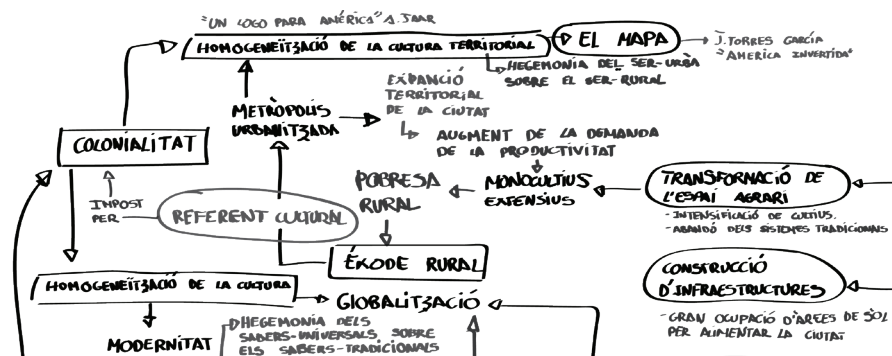 "UN LOGO PARA AMÉRICA" A. JAAR
HOMOGENEÏTZACIÓ DE LA CULTURA TERRITORIAL
EL MAPA
J. TORRES GARCÍA
"AMERICA INVERTIDA"
HEGEMONIA DEL SER-URBÀ
SOBRE EL SER-RURAL
EXPANCIÓ
TERRITORIAL
DE LA CIUTAT
METRÒPOLIS
URBANITZADA
AUGMENT DE LA DEMANDA
DE LA PRODUCTIVITAT
COLONIALITAT
IMPOST
PER
REFERENT CULTURAL
POBRESA
RURAL
MONOCULTIUS
EXTENSIUS
TRANSFORMACIÓ DE
L'ESPAI AGRARI
- INTENSIFICACIÓ DE CULTIUS.
- ABANDÓ DELS SISTEMES TRADICIONALS
ÉXODE RURAL
CONSTRUCCIÓ
D'INFRAESTRUCTURES
- GRAN OCUPACIÓ D'ÀREES DE SÒL
PER ALIMENTAR LA CIUTAT
HOMOGENEÏTZACIÓ DE LA CULTURA
GLOBALITZACIÓ
MODERNITAT
HEGEMONIA DELS
SABERS-UNIVERSALS SOBRE
ELS SABERS-TRADICIONALS